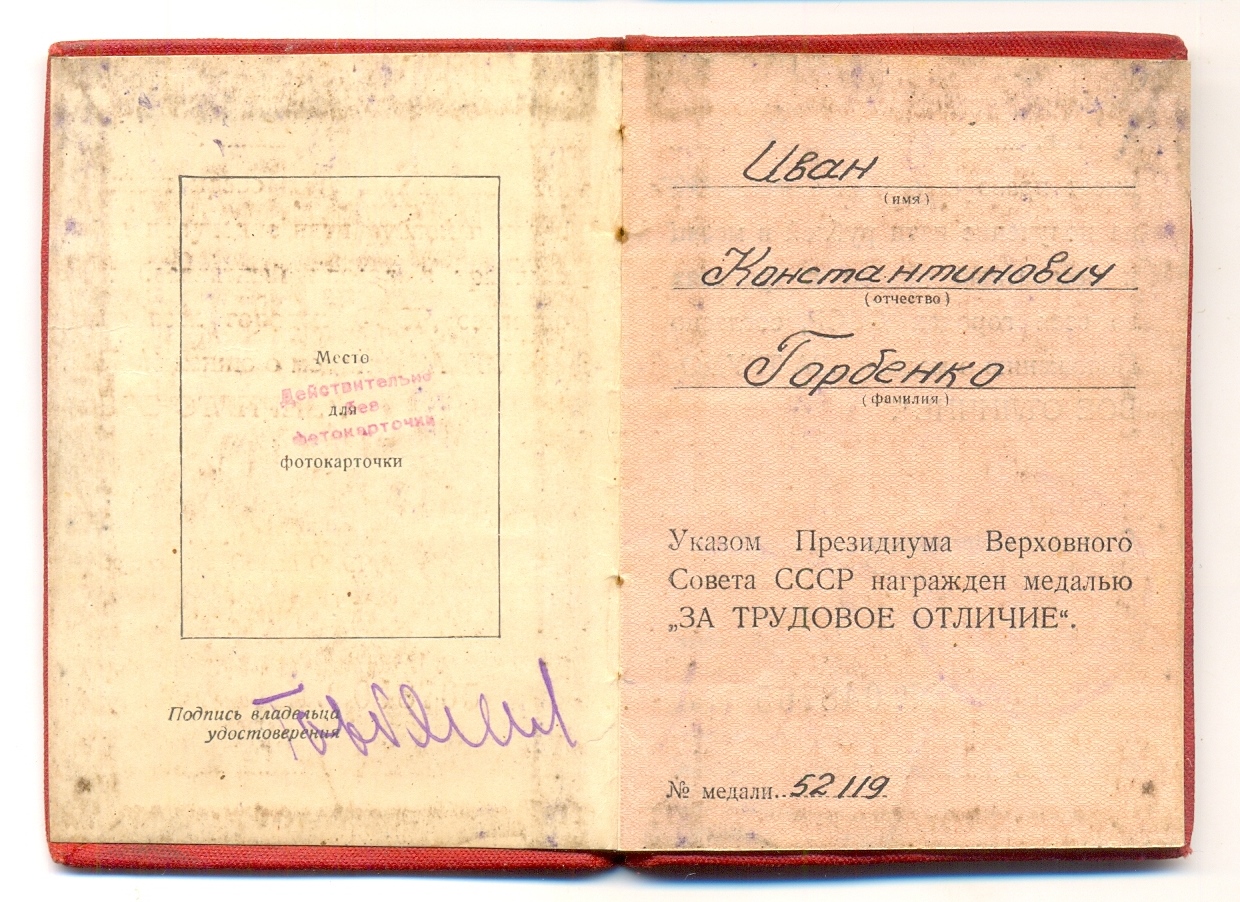 Место
для
фотокарточки
Действительно
без
фотокарточки
Подпись владельца
удостоверения
Иван
(имя)
Константинович
(отчество)
Горбенко
(фамилия)
Указом Президиума Верховного
Совета СССР награжден медалью
„ЗА ТРУДОВОЕ ОТЛИЧИЕ“.
№ медали..52119